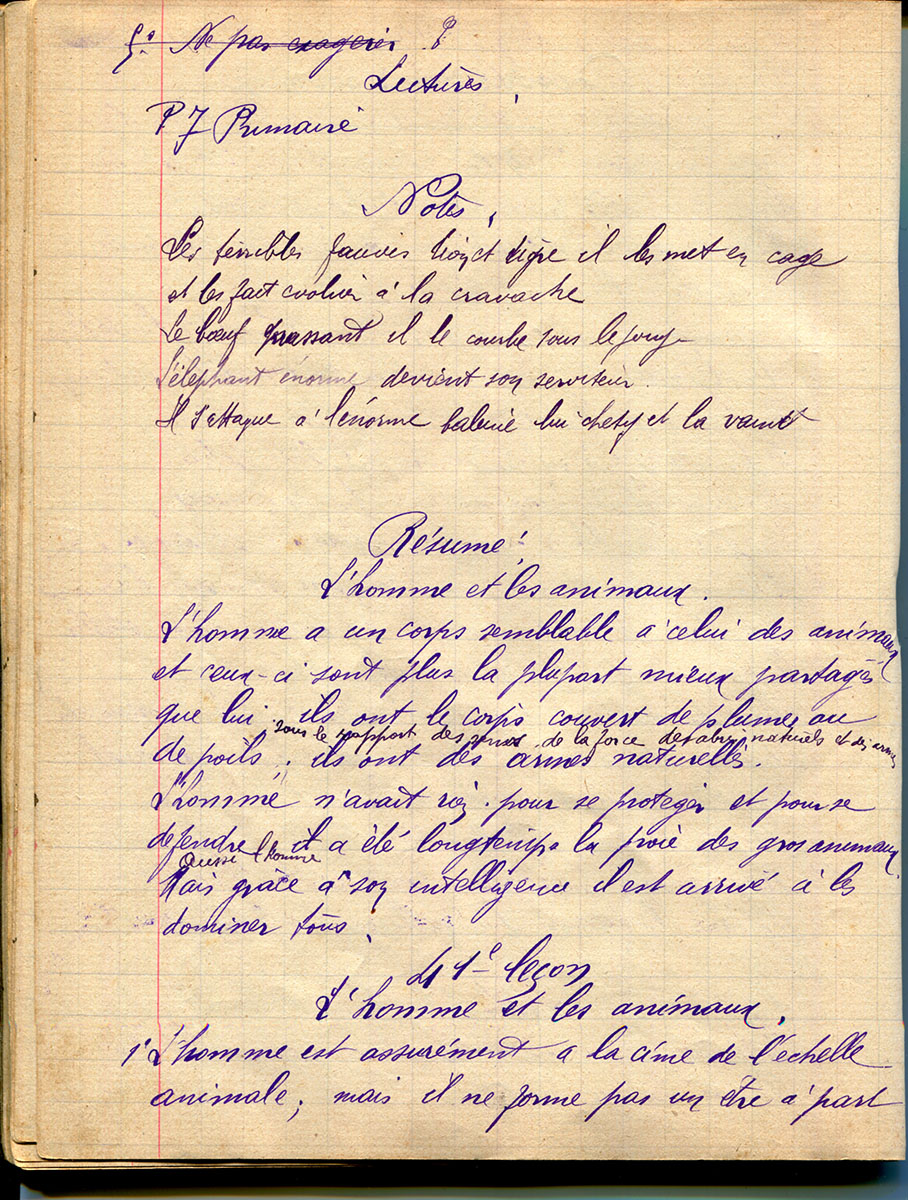 Ne pas exagérer
Lectures,
P 7 Primaire
Notes,
Les terribles fauves lion et tigre il les met en cage
et les fait évoluer à la cravache
Le bœuf puissant il le courbe sous le joug
L'éléphant énorme devient son serviteur.
Il s'attaque à l'énorme baleine lui chétif et la vainct
Résumé,
L'homme et les animaux.
L'homme a un corps semblable à celui des animaux
et ceux-ci sont plus la plupart mieux partagés
que lui. ils ont le corps couvert de plumes ou
sous le rapport des sens de la force des abris naturels et des armes
de poils. ils ont des armes naturelles.
L'homme n'avait rien pour se protéger et pour se
défendre il a été longtemps la proie des gros animaux.
aussi l'homme
Mais grâce à son intelligence il est arrivé à les
dominer tous.
41e leçon
L'homme et les animaux.
1° L'homme est assurément a la cime de l'échelle
animale; mais il ne forme pas un être à part